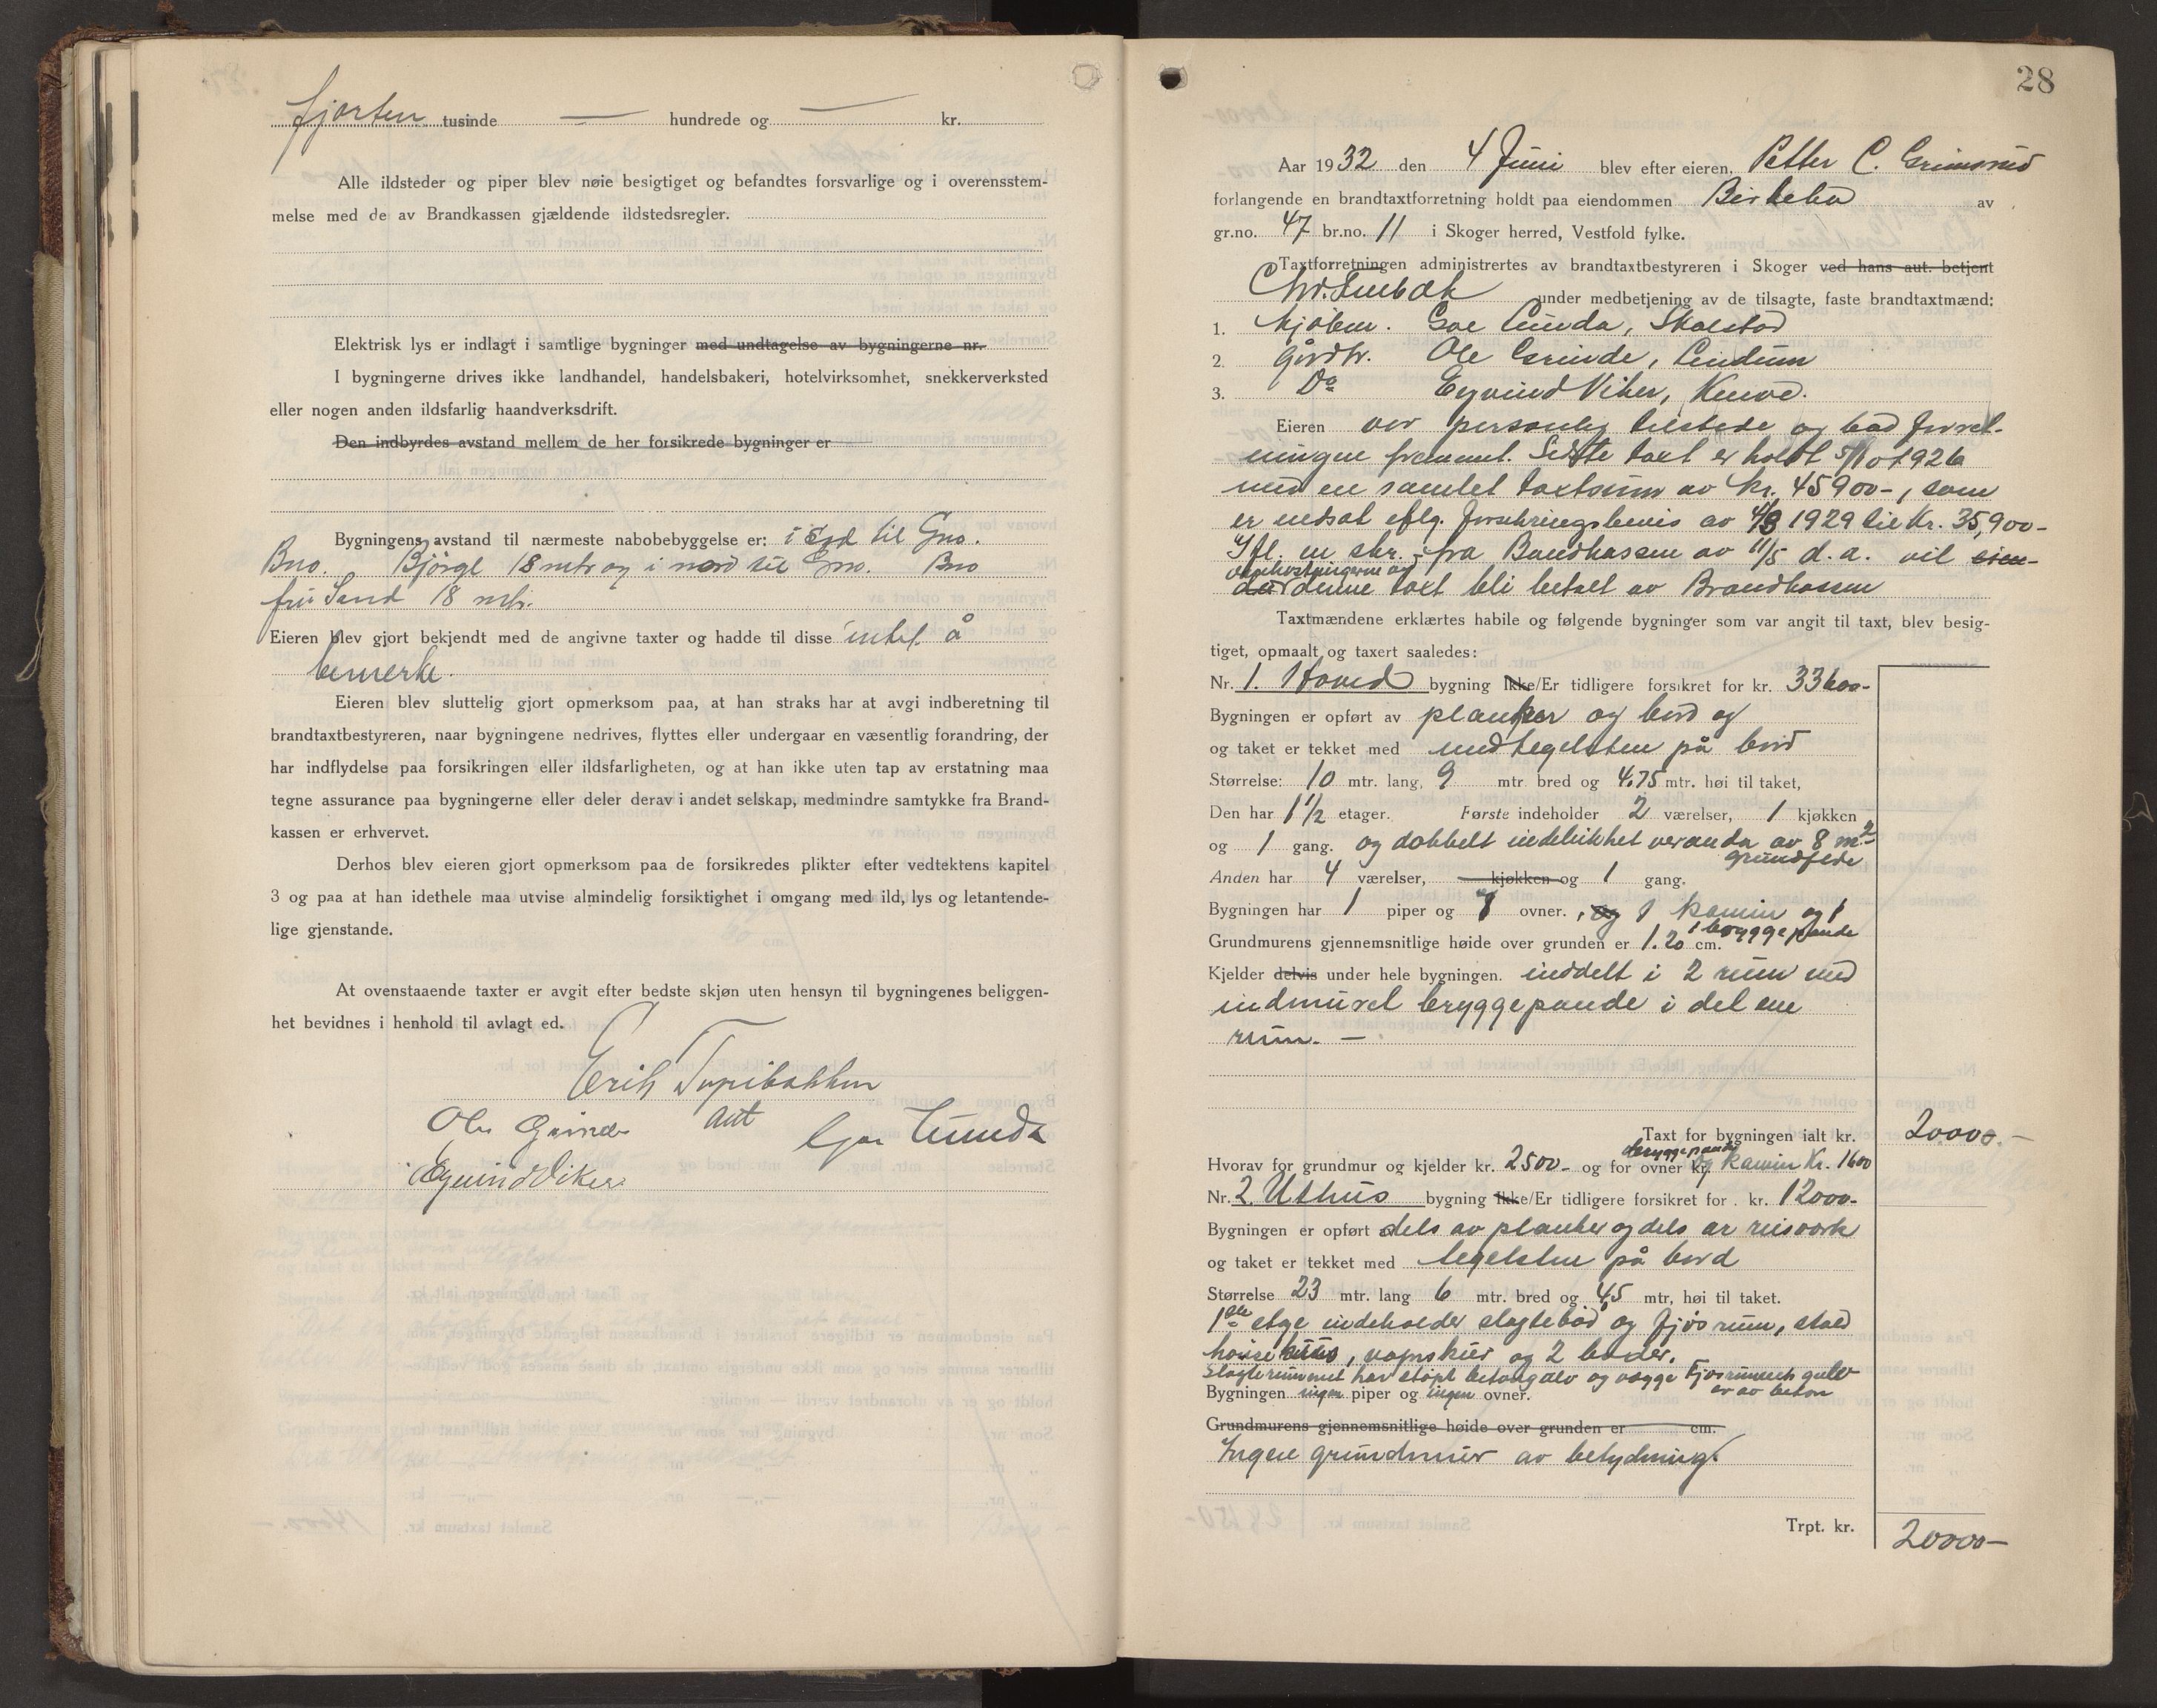 fjorten tusinde — hundrede og — kr.
Alle ildsteder og piper blev nøie besigtiget og befandtes forsvarlige og i overensstem-
melse med de av Brandkassen gjældende ildstedsregler.
Elektrisk lys er indlagt i samtlige bygninger med undtagelse av bygningerne nr.
I bygningerne drives ikke landhandel, handelsbakeri, hotelvirksomhet, snekkerverksted
eller nogen anden ildsfarlig haandverksdrift.
Den indbyrdes avstand mellem de her forsikrede bygninger er
Bygningens avstand til nærmeste nabobebyggelse er: i syd til Gno.
Bno. Bjørge 18 mtr og i nord til Gno. Bno
fru Sand 18 mtr.
Eieren blev gjort bekjendt med de angivne taxter og hadde til disse intet å
bemerke.
Eieren blev sluttelig gjort opmerksom paa, at han straks har at avgi indberetning til
brandtaxtbestyreren, naar bygningene nedrives, flyttes eller undergaar en væsentlig forandring, der
har indflydelse paa forsikringen eller ildsfarligheten, og at han ikke uten tap av erstatning maa
tegne assurance paa bygningerne eller deler derav i andet selskap, medmindre samtykke fra Brand-
kassen er erhvervet.
Derhos blev eieren gjort opmerksom paa de forsikredes plikter efter vedtektens kapitel
3 og paa at han idethele maa utvise almindelig forsiktighet i omgang med ild, lys og letantende-
lige gjenstande.
At ovenstaaende taxter er avgit efter bedste skjøn uten hensyn til bygningenes beliggen-
het bevidnes i henhold til avlagt ed.
Erik
aut
Ole Grinde
Goe Lunda
Eyvind Viker
28
Aar 1932 den 4 Juni blev efter eieren, Petter C. Grimsrud
forlangende en brandtaxtforretning holdt paa eiendommen Birkebo av
gr.no. 47 br.no. 11 i Skoger herred, Vestfold fylke.
Taxtforretningen administrertes av brandtaxtbestyreren i Skoger ved hans aut. betjent
Chr. under medbetjening av de tilsagte, faste brandtaxtmænd:
1. Kjøbm. Goe Lunda, Skalstad
2. Gårdbr. Ole Grinde, Lindum
3. Do Eyvind Viker,
Eieren var personlig tilstede og bad forret-
ningen fremmet. Sidste taxt er holdt 5/10 1926
med en samlet taxtsum av kr. 45900-, som
er nedsat iflg. forsikringsbevis av 4/3 1929 til Kr. 35,900-
Ifl. en skr. fra Brandkassen av 11/5 d.a. vil eien-
omkostningerne og
denne taxt bli betalt av Brandkassen
Taxtmændene erklærtes habile og følgende bygninger som var angit til taxt, blev besig-
tiget, opmaalt og taxert saaledes:
Nr. 1. Hoved bygning Ikke/Er tidligere forsikret for kr. 33600-
Bygningen er opført av planker og bord og
og taket er tekket med med tegelsten på bord
Størrelse: 10 mtr. lang, 9 mtr bred og 4.75 mtr. høi til taket,
Den har 1 1/2 etager. Første indeholder 2 værelser, 1 kjøkken
og 1 gang. og dobbelt indebikket veranda av 8 m2
grundflde
Anden har 4 værelser, kjøkken og 1 gang.
Bygningen har 1 piper og 7 ovner., og 1 kamin og 1
1 bryggepande
Grundmurens gjennemsnitlige høide over grunden er 1.20 cm.
Kjelder delvis under hele bygningen. inddelt i 2 rum med
indmuret bryggepande i det ene
rum. —
Taxt for bygningen ialt kr. 20000.-
bryggepande
Hvorav for grundmur og kjelder kr. 2500- og for ovner kr. og kamin Kr. 1600
Nr. 2. Uthus bygning Ikke/Er tidligere forsikret for . kr. 12000-
Bygningen er opført dels av planker og dels av reisverk
og taket er tekket med tegelsten på bord
Størrelse 23 mtr. lang 6 mtr. bred og 4,5 mtr, høi til taket.
1ste etge indeholder slagtebod og fjøsrum, stald
hønsehus, vognskur og 2 boder.
Slagterummet har støpt betongulv og vægge Fjøsrummets gulv
er av beton
Bygningen ingen piper og ingen ovner.
Grundmurens gjennemsnitlige høide over grunden er cm.
Ingen grundmur av betydning.
Trpt. kr. 20000-